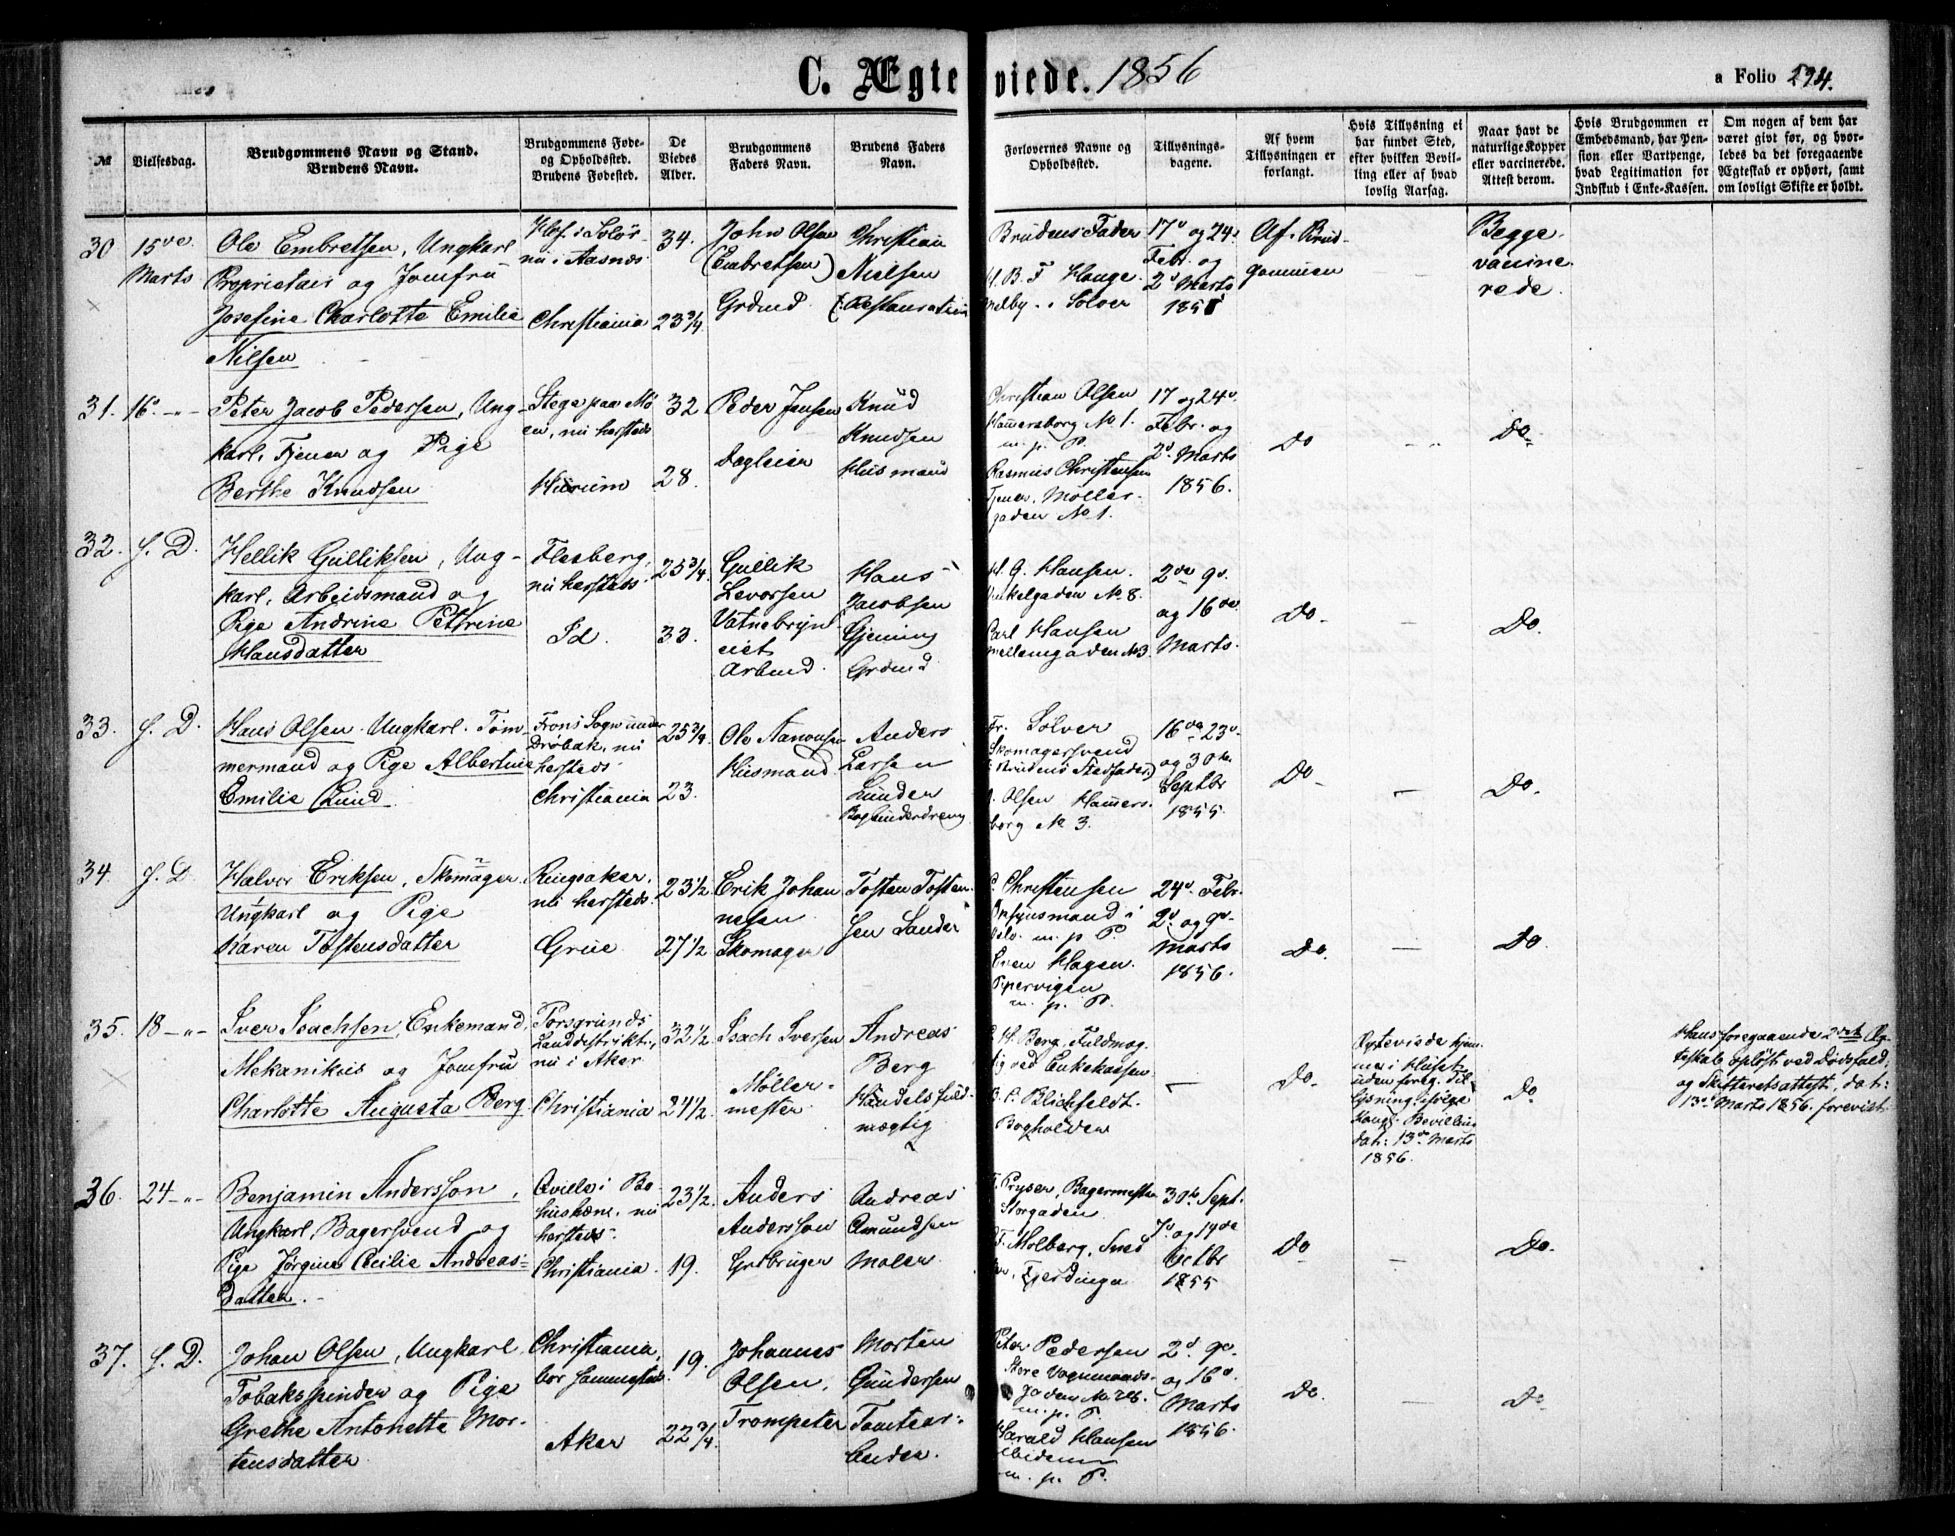 C. Ægteviede. 1856
a Folio 294.
№
Vielsesdag.
Brudgommens Navn og Stand.
Brudens Navn.
Brudgommens Føde-
og Opholdssted.
Brudens Fødested.
De
Viedes
Alder.
Brudgommens
Faders Navn.
Brudens Faders
Navn.
Forlovernes Navne og
Opholdssted.
Tillysnings-
dagene.
Af hvem
Tillysningen er
forlangt.
Hvis Tillysning ei
har fundet Sted,
efter hvilken Bevil-
ling eller af hvad
lovlig Aarsag.
Naar havt de
naturlige Kopper
eller vaccinerede.
Attest derom.
Hvis Brudgommen er
Embedsmand, har Pen-
sion eller Vartpenge,
hvad Legitimation for
Indskud i Enke-Kassen.
Om nogen af dem har
været givt før, og hvor-
ledes da det foregaaende
Ægteskab er ophørt, samt
om lovligt Skifte er holdt.
30
15de
Marts
Ole Embretsen, Ungkarl
Proprietair og Jomfru
Josefine Charlotte Emilie
Nilsen
Hof i Solør
nu i Aasnes
Christiania
34.
23 3/4
John Olsen
(Embretsen)
Grdmd
Christian
Nielsen
Brudens Fader
H. B. F. Hauge
Melby i Solver
17de og 24.
Febr. og
2d Marts
Af Brud-
gommen
Begge
vaccine
rede.
31. 16.
Peter Jacob Pedersen, Ung-
karl, Tjener og Pige
Berthe Knudsen
Stege paa Mö
en, nu hersteds
Hurum
32
28.
Peder Jensen
Dagleier
Knud
Knudsen
Husmand
Christian Olsen
Hamersborg No 1.
m. p. P.
Rasmus Christensen
Tjener, Møller-
gaden No 1.
17 og 24d.
Febr. og
2d Marts
1856.
Do
Do.
32. S. D.
Hellik Gulliksen, Ung-
karl, Arbeidsmand og
Pige Andrine Petrine
Hansdatter
Flesberg,
nu hersteds.
Id.
25 3/4
33.
Gullik
Levorsen
Vatnebryn
eiet
Arbmd.
Hans
Jacobsen
Gjening
Grdmd
H. G. Hansen.
No. 8.
Carl Hansen
Mellemgaden No 3.
2de 9d.
og 16de
Marts.
Do.
Do.
33. S. D.
Hans Olsen Ungkarl. Töm-
mermand og Pige Albertine
Emilie Lund
Frons Sogn under
Dröbak, nu
hersteds.
Christiania
25 3/4
23.
Ole Aanonsen
Husmand
Anders
Larsen
Lunder
Bogbinderdreng
Fr. Solver
Skomagersvend
(Brudens Stedfader)
Olsen Hamers-
borg No 3.
16de 23d
og 30te
Septbr
1855.
Do
Do.
34. S. D.
Halvor Eriksen, Skomager.
Ungkarl og Pige
Karen Tostensdatter
Ringsaker,
nu hersteds.
Grue
23 1/2
27 1/2
Erik Johan
nesen
Skomager
Tosten Tosten-
sen Sander
Christensen
Opsynsmand i
m. p. P.
Even Hagen.
Pipervigen
m. p. P.
24d. Febr.
2d og 9d.
Marts
1856.
Do.
Do.
35. 18
Iver Isachsen, Enkemand,
Mekanikus og Jomfru
Charlotte Augusta Berg
Porsgrunds
Landdistrikt,
nu i Aker
Christiania
32 1/2
24 1/2
Isach Iversen
Møller-
mester
Andreas
Berg
Handelsfuld-
mægtig
H. Berg, Fuldmæg-
tig ved Enkekassen
B. P. Blichfeldt.
Bogholder
Do.
Ægteviede hjem
me i Huset
uden foreg. Til
lysning ifølge
Kongl. Bevilling
dat: 13de Marts
1856.
Do
Hans foregaaende 2det Æg-
teskab opløst ved Dödsfald,
og Skifteretsattest, dat:
13de Marts 1856. forevist.
36. 24
Benjamin Andersson,
Ungkarl, Bagersvend og
Pige Jørgine Cecilie Andreas-
datter.
Qville i Bo
huslæn, nu
hersteds.
Christiania.
23 1/2.
19.
Anders
Andersson
Grdbruger
Andreas
Amundsen
Maler
F. Pryser, Bagermester
Storgaden.
F. Molberg, Sned
ker, Fjerdingen
30te Sept.
7d og 14de
Octbr
1855
Do
Do.
37. S. D.
Johan Olsen, Ungkarl
Tobakspinder og Pige
Grethe Antonette Mor-
tensdatter
Christiania,
bor sammesteds.
Aker
19.
22 3/4.
Johannes
Olsen,
Trompeter
Morten
Gundersen
Tomtear-
beider.
Peter Pedersen
Store Vognmands-
gaden No.
m. p. P.
Harald Hansen
Arbeidsm
m. p. P.
2d. 9d.
og 16d.
Marts
1856.
Do.
Do